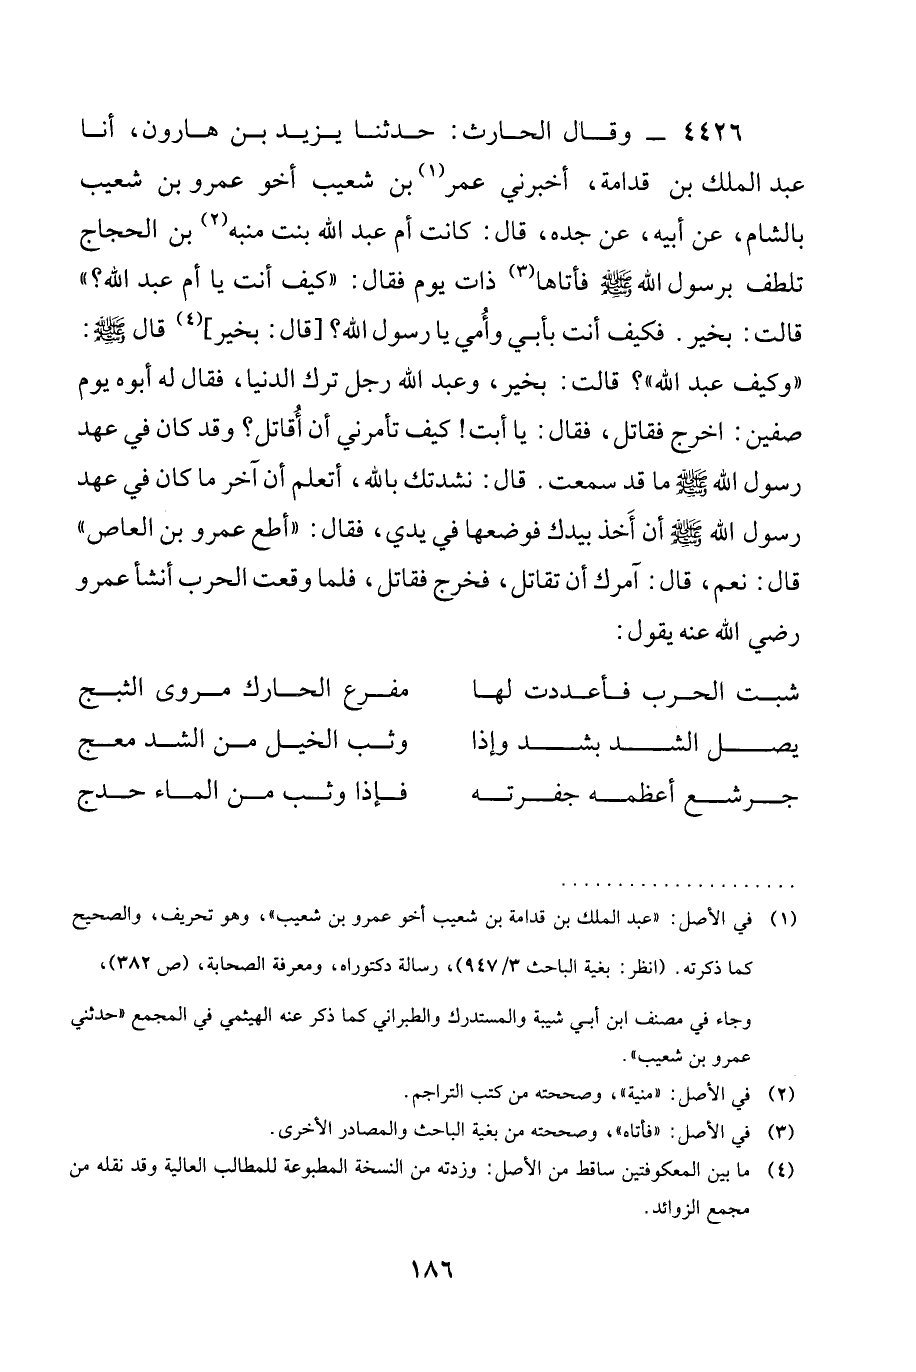 ٤٤٢٦ ــ وقـــال الحـــارث: حـــدثنـــا يـــزيـــد بـــن هـــارون، أنـــا
عبد الملك بن قدامة، أخبرني عمر(١) بن شعيب أخو عمرو بن شعيب
بالشام، عن أبيه، عن جده، قال: كانت أم عبد الله بنت منبه(٢) بن الحجاج
تلطف برسول الله ﷺ فأتاها(٣) ذات يوم فقال: «كيف أنت يا أم عبد الله؟»
قالت: بخير. فكيف أنت بأبـي وأُمي يا رسول الله؟ [قال: بخير](٤) قال ﷺ:
«وكيف عبد الله»؟ قالت: بخير، وعبد الله رجل ترك الدنيا، فقال له أبوه يوم
صفين: اخرج فقاتل، فقال: يا أبت! كيف تأمرني أن أُقاتل؟ وقد كان في عهد
رسول الله ﷺ ما قد سمعت. قال: نشدتك بالله، أتعلم أن آخر ما كان في عهد
رسول الله ﷺ أن أَخذ بيدك فوضعها في يدي، فقال: «أطع عمرو بن العاص»
قال: نعم، قال: آمرك أن تقاتل، فخرج فقاتل، فلما وقعت الحرب أنشأ عمرو
رضي الله عنه يقول:
شبـــت الحـــرب فـــأعـــددت لهـــا مفـــرع الحـــارك مـــروى الثبـــج
يصـــل الشـــد بشـــد وإذا وثـــب الخيـــل مـــن الشـــد معـــج
جـــرشـــع أعظمـــه جفـــرتـــه فـــإذا وثـــب مـــن المـــاء حـــدج
(١) في الأصل: «عبد الملك بن قدامة بن شعيب أخو عمرو بن شعيب»، وهو تحريف، والصحيح
كما ذكرته. (انظر: بغية الباحث ٩٤٧/٣)، رسالة دكتوراه، ومعرفة الصحابة، (ص ٣٨٢)،
وجاء في مصنف ابن أبـي شيبة والمستدرك والطبراني كما ذكر عنه الهيثمي في المجمع «حدثني
عمرو بن شعيب».
(٢) في الأصل: «منية»، وصححته من كتب التراجم.
(٣) في الأصل: «فأتاه»، وصححته من بغية الباحث والمصادر الأخرى.
(٤) ما بين المعكوفتين ساقط من الأصل: وزدته من النسخة المطبوعة للمطالب العالية وقد نقله من
مجمع الزوائد.
١٨٦